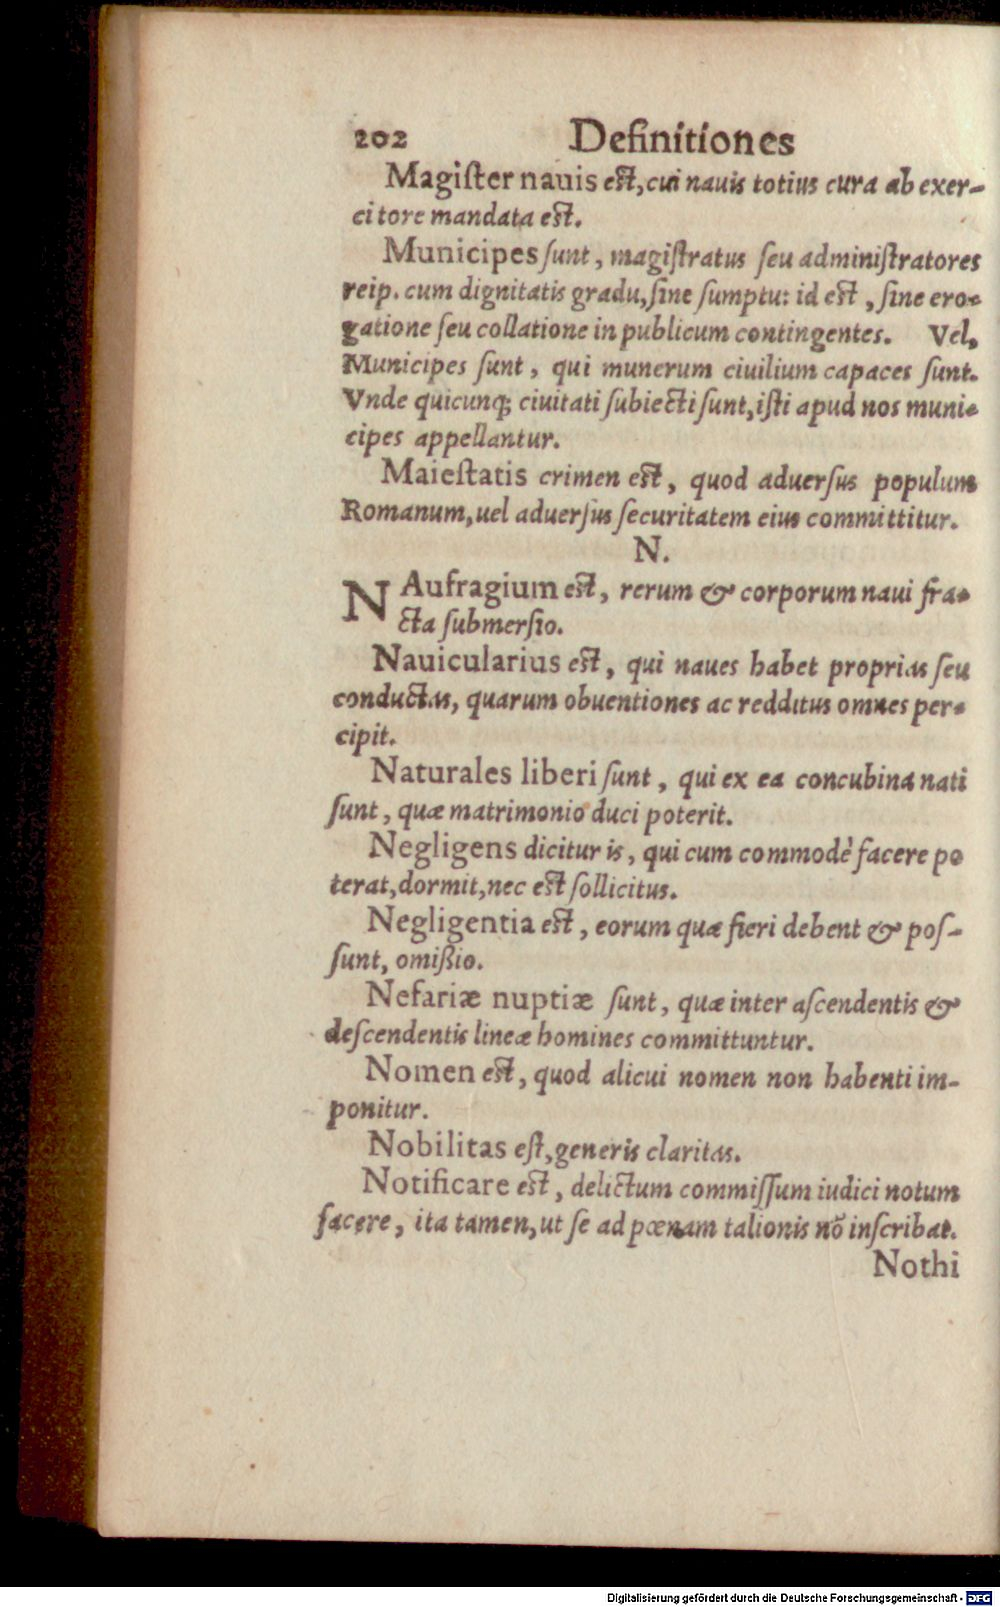 202 Definitiones
Magiſter nauis eſt, cui nauis totius cura ab exer-
citore mandata eſt.
Municipes ſunt, magiſtratus ſeu adminiſtratores
reip. cum dignitatis gradu, ſine ſumptu: id eſt, ſine ero-
gatione ſeu collatione in publicum contingentes. Vel,
Municipes ſunt, qui munerum ciuilium capaces ſunt.
Vnde quicunq; ciuitati ſubiecti ſunt, iſti apud nos muni-
cipes appellantur.
Maieſtatis crimen eſt, quod aduerſus populum
Romanum, uel aduerſus ſecuritatem eius committitur.
N.
NAufragium eſt, rerum & corporum naui fra-
cta ſubmerſio.
Nauicularius eſt, qui naues habet proprias ſeu
conductas, quarum obuentiones ac redditus omnes per-
cipit.
Naturales liberi ſunt, qui ex ea concubina nati
ſunt, quæ matrimonio duci poterit.
Negligens dicitur is, qui cum commodè facere po
terat, dormit, nec eſt ſollicitus.
Negligentia eſt, eorum quæ fieri debent & poſ-
ſunt, omißio.
Nefariæ nuptiæ ſunt, quæ inter aſcendentis &
deſcendentis lineæ homines committuntur.
Nomen eſt, quod alicui nomen non habenti im-
ponitur.
Nobilitas eſt, generis claritas.
Notificare eſt, delictum commiſſum iudici notum
facere, ita tamen, ut ſe ad pœnam talionis nõ inſcribat.
Nothi
Digitalisierung gefördert durch die Deutsche Forschungsgemeinschaft - DFG